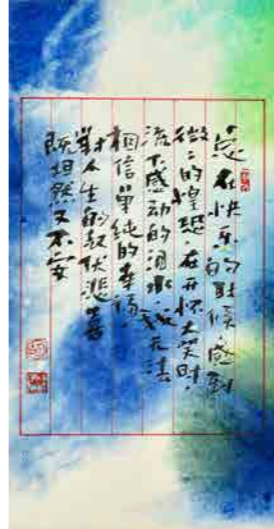 总在快乐的时候，感到
微々的惶恐，在开怀大笑时，
流下感动的泪水，我无法
相信單纯的幸福，
對人生的起伏悲喜
既坦然又不安